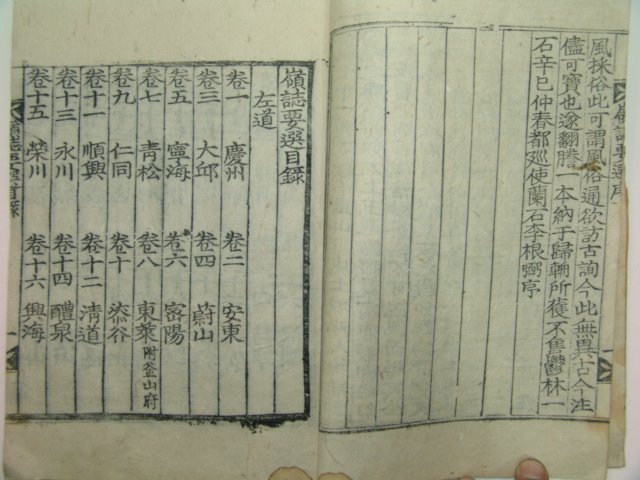 風採俗此可謂風俗通欲訪古詢今此無異古今注
儘可寶也遂翻謄一本納于歸朝所獲不售鬱林一
石辛巳仲春都巡使蘭石李根弼序
嶺誌要選目錄
左道
卷一 慶州 卷二 安東
卷三 大邱 卷四 蔚山
卷五 寧海 卷六 密陽
卷七 靑松 卷八 東萊 附釜山府
卷九 仁同 卷十 漆谷
卷十一 順興 卷十二 淸道
卷十三 永川 卷十四 醴泉
卷十五 榮川 卷十六 興海